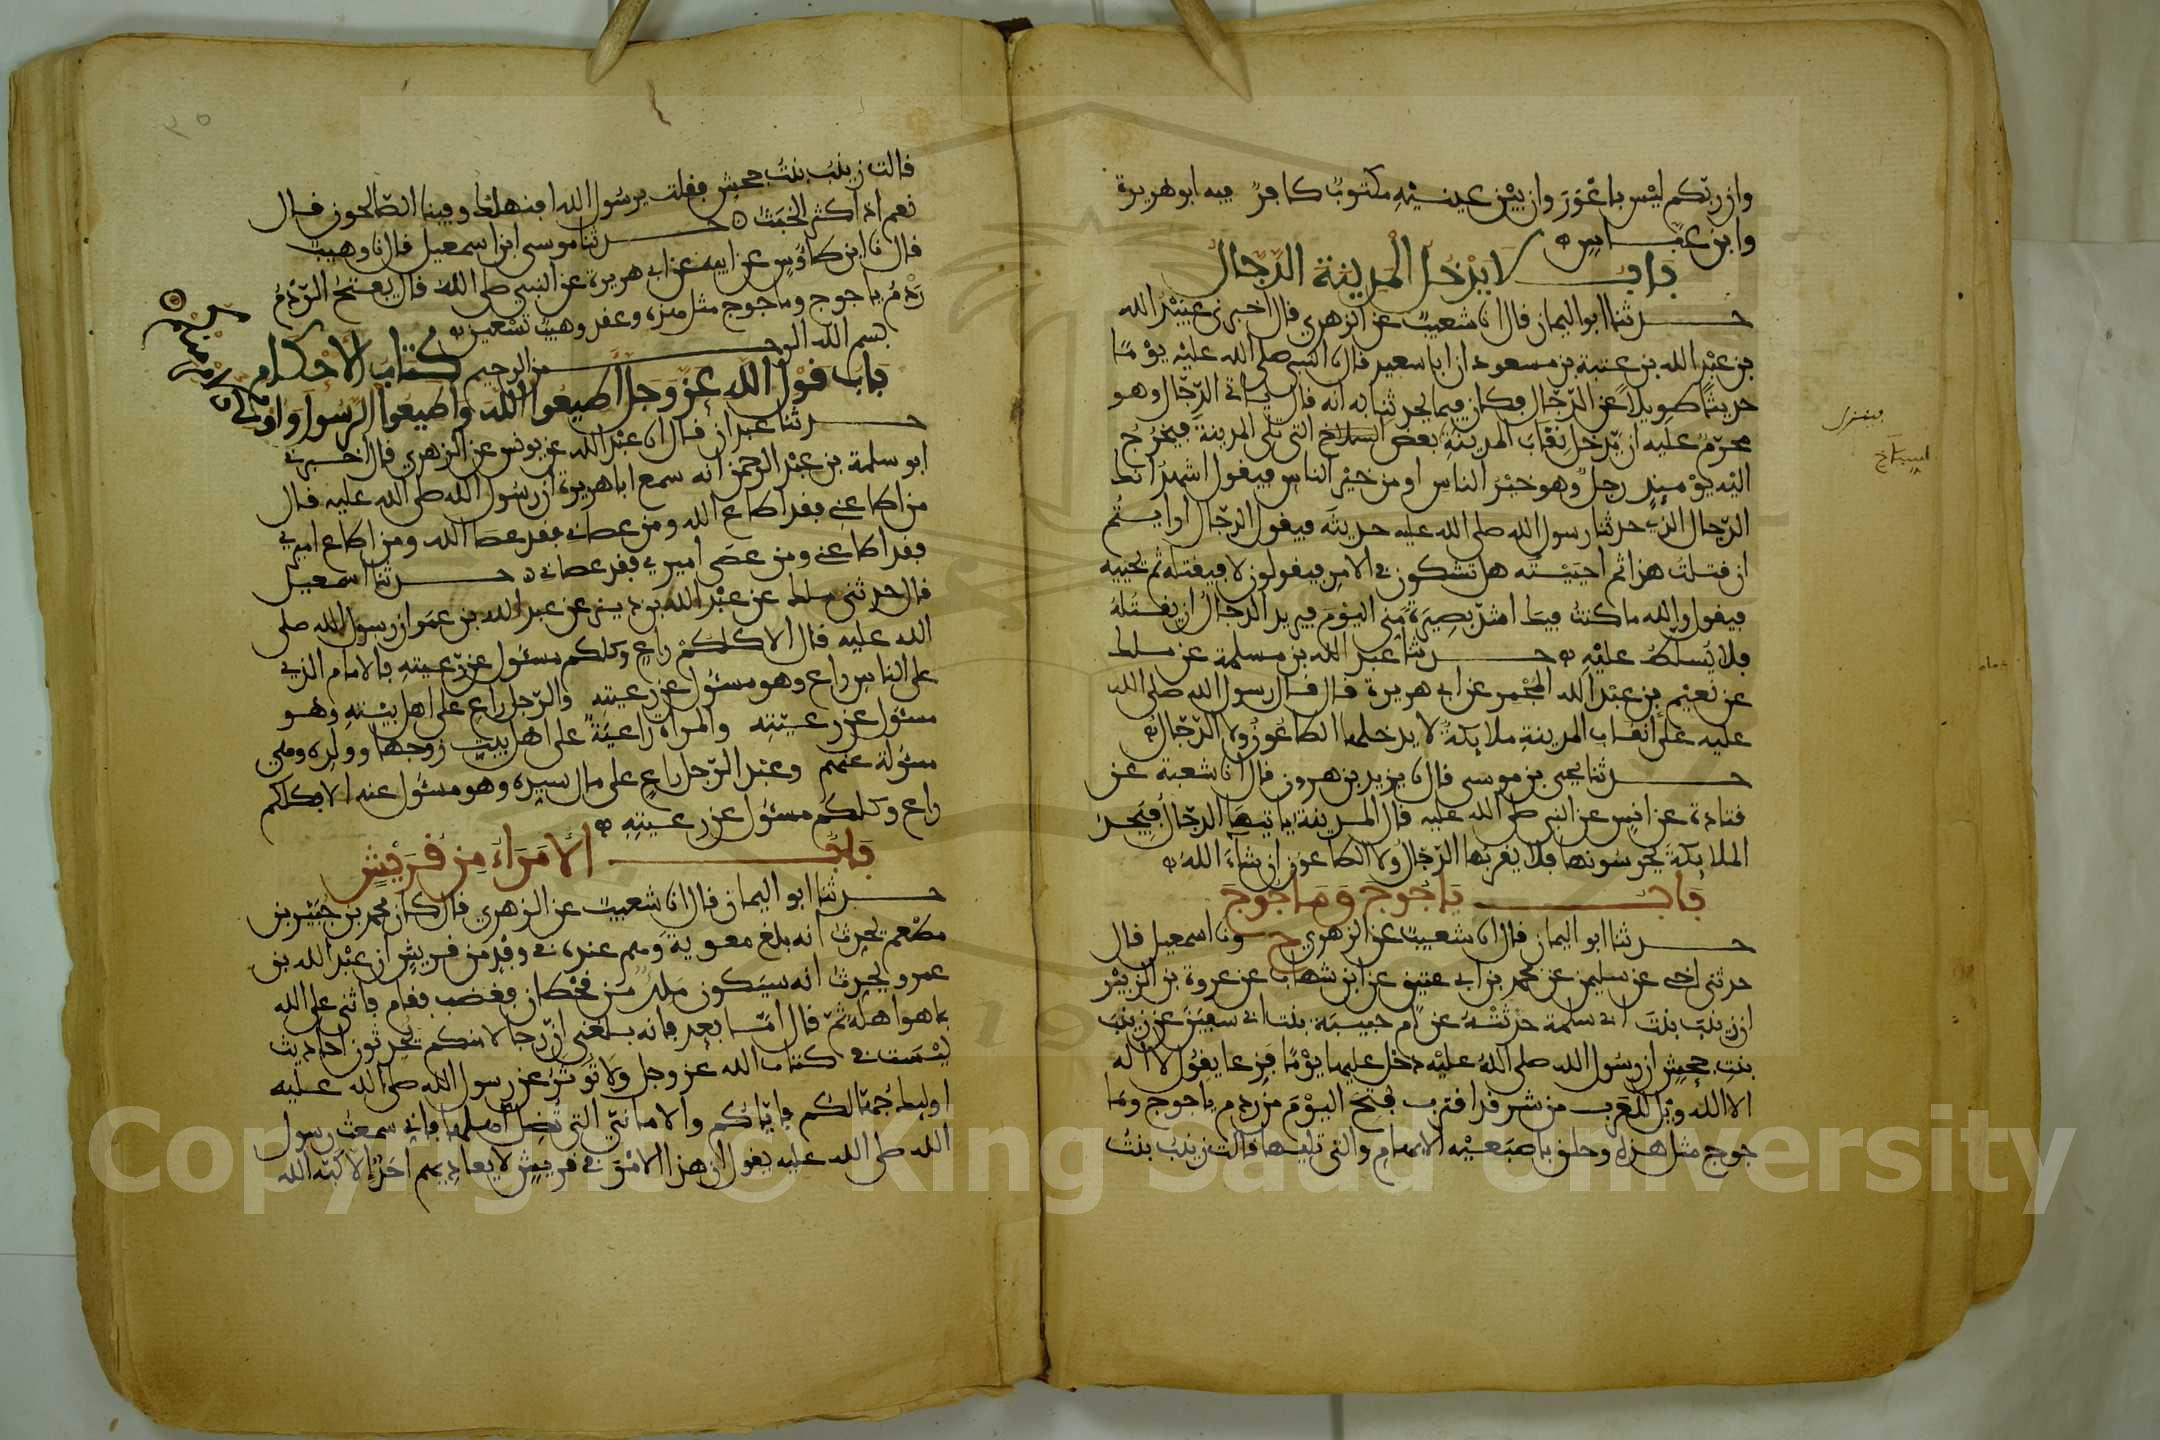 وان ربكم ليس باعور وان بين عينيه مكتوب كافر فيه ابو هريرة
وابن عباس
باب لا يدخل المدينة الدجال
حدثنا ابو اليمان قال انا شعيب عن الزهري قال اخبرني عبيد الله
بن عبد الله بن عتبة بن مسعود ان ابا سعيد قال نا النبي صلى الله عليه يوما
حديثا طويلا عن الدجال فكان فيما يحدثنا به انه قال ياتي الدجال وهو
محرم عليه ان يدخل نقاب المدينة بعض السباخ التي تلي المدينة فيخرج
اليه يومئذ رجل وهو خير الناس او من خير الناس فيقول اشهد انك
الدجال الذي حدثنا رسول الله صلى الله عليه حديثه فيقول الدجال ارايتم
ان قتلت هذا ثم احييته هل تشكون في الامر فيقولون لا فيقتله ثم يحييه
فيقول والله ما كنت فيك اشد بصيرة مني اليوم فيريد الدجال ان يقتله
فلا يسلط عليه حدثنا عبد الله بن مسلمة عن ملك
عن نعيم بن عبد الله المجمر عن ابي هريرة قال قال رسول الله صلى الله
عليه على انقاب المدينة ملائكة لا يدخلها الطاعون ولا الدجال
حدثنا يحيى بن موسى قال نا يزيد بن هرون قال انا شعبة عن
قتادة عن انس عن النبي صلى الله عليه قال المدينة ياتيها الدجال فيجد
الملائكة يحرسونها فلا يقربها الدجال ولا الطاعون ان شاء الله
باب ياجوج وماجوج
حدثنا ابو اليمان قال انا شعيب عن الزهري ح ونا اسمعيل قال
حدثني اخي عن سليمن عن محمد بن ابي عتيق عن ابن شهاب عن عروة بن الزبير
ان زينب بنت ابي سلمة حدثته عن ام حبيبة بنت ابي سفين عن زينب
بنت جحش ان رسول الله صلى الله عليه دخل عليها يوما فزعا يقول لا اله
الا الله ويل للعرب من شر قد اقترب فتح اليوم من ردم ياجوج وما
جوج مثل هذه وحلق باصبعيه الابهام والتي تليها قالت زينب بنت
فينزل
السباخ
قالت زينب بنت جحش فقلت يرسول الله افنهلك وفينا الصالحون قال
نعم اذا كثر الخبث حدثنا موسى ابن اسمعيل قال نا وهيب
قال نا ابن طاوس عن ابيه عن ابي هريرة عن النبي صلى الله قال يفتح الردم
ردم ياجوج وماجوج مثل هذه وعقد وهيب تسعين
بسم الله الرحمن الرحيم كتاب الاحكام
باب قول الله عز وجل اطيعوا الله واطيعوا الرسول واولي الامر منكم
حدثنا عبدان قال انا عبد الله عن يونس عن الزهري قال اخبرني
ابو سلمة بن عبد الرحمن انه سمع ابا هريرة ان رسول الله صلى الله عليه قال
من اطاعني فقد اطاع الله ومن عصاني فقد عصا الله ومن اطاع اميري
فقد اطاعني ومن عصى اميري فقد عصاني حدثنا اسمعيل
قال حدثني ملك عن عبد الله بن دينر عن عبد الله بن عمر ان رسول الله صلى
الله عليه قال الا كلكم راع وكلكم مسئول عن رعيته فالامام الذي
على الناس راع وهو مسئول عن رعيته والرجل راع على اهل بيته وهو
مسئول عن رعيته والمراة راعية على اهل بيت زوجها وولده وهي
مسئولة عنهم وعبد الرجل راع على مال سيده وهو مسئول عنه الا فكلكم
راع وكلكم مسئول عن رعيته
باب الامراء من قريش
حدثنا ابو اليمان قال انا شعيب عن الزهري قال كان محمد بن جبير بن
مطعم يحدث انه بلغ معوية وهم عنده في وفد من قريش ان عبد الله بن
عمرو يحدث انه سيكون ملك من قحطان فغضب فقام فاثنى على الله
بما هو اهله ثم قال اما بعد فانه بلغني ان رجالا منكم يحدثون احاديث
ليست في كتاب الله عز وجل ولا توثر عن رسول الله صلى الله عليه
اوليك جهالكم فاياكم والاماني التي تضل اهلها فاني سمعت رسول
الله صلى الله عليه يقول ان هذا الامر في قريش لا يعاديهم احد الا كبه الله
Copyright © King Saud University